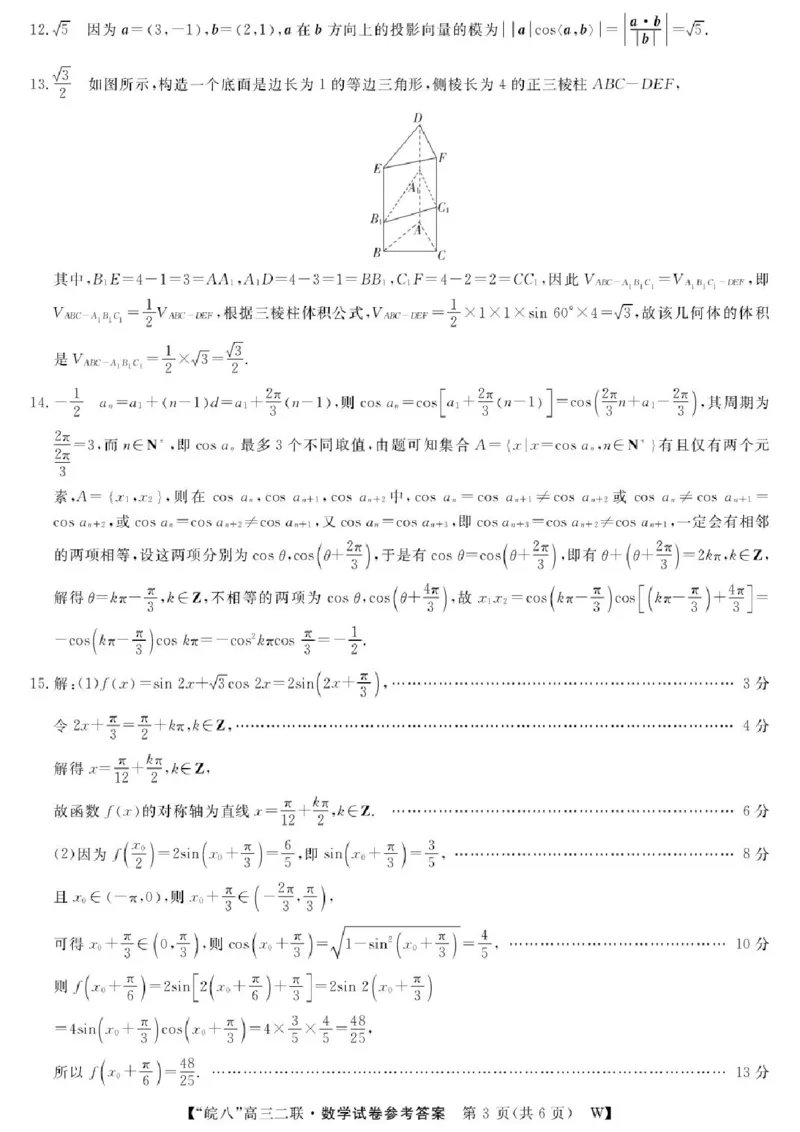 12. √5 因为 a=(3,-1),b=(2,1),a 在 b 方向上的投影向量的模为||a|cos⟨a,b⟩|=|a·b/|b||=√5.
13. √3/2 如图所示,构造一个底面是边长为 1 的等边三角形,侧棱长为 4 的正三棱柱 ABC-DEF,
D
E
F
A₁
B₁
C₁
A
B
C
其中,B₁E=4-1=3=AA₁,A₁D=4-3=1=BB₁,C₁F=4-2=2=CC₁,因此 V_{ABC-A₁B₁C₁}=V_{A₁B₁C₁-DEF},即
V_{ABC-A₁B₁C₁}=1/2 V_{ABC-DEF},根据三棱柱体积公式,V_{ABC-DEF}=1/2×1×1×sin 60°×4=√3,故该几何体的体积
是 V_{ABC-A₁B₁C₁}=1/2×√3=√3/2.
14. -1/2 aₙ=a₁+(n-1)d=a₁+2π/3(n-1),则 cos aₙ=cos[a₁+2π/3(n-1)]=cos(2π/3 n+a₁-2π/3),其周期为
2π/(2π/3)=3,而 n∈N*,即 cos aₙ 最多 3 个不同取值,由题可知集合 A={x|x=cos aₙ,n∈N*}有且仅有两个元
素,A={x₁,x₂},则在 cos aₙ,cos aₙ₊₁,cos aₙ₊₂ 中,cos aₙ=cos aₙ₊₁≠cos aₙ₊₂ 或 cos aₙ≠cos aₙ₊₁=
cos aₙ₊₂,或 cos aₙ=cos aₙ₊₂≠cos aₙ₊₁,又 cos aₙ=cos aₙ₊₃,即 cos aₙ₊₃=cos aₙ₊₂≠cos aₙ₊₁,一定会有相邻
的两项相等,设这两项分别为 cos θ,cos(θ+2π/3),于是有 cos θ=cos(θ+2π/3),即有 θ+(θ+2π/3)=2kπ,k∈Z,
解得 θ=kπ-π/3,k∈Z,不相等的两项为 cos θ,cos(θ+4π/3),故 x₁x₂=cos(kπ-π/3)cos[(kπ-π/3)+4π/3]=
-cos(kπ-π/3)cos kπ=-cos²kπcos π/3=-1/2.
15. 解:(1)f(x)=sin 2x+√3cos 2x=2sin(2x+π/3),…………………………………… 3 分
令 2x+π/3=π/2+kπ,k∈Z,…………………………………… 4 分
解得 x=π/12+kπ/2,k∈Z,
故函数 f(x)的对称轴为直线 x=π/12+kπ/2,k∈Z. …………………………………… 6 分
(2)因为 f(x₀/2)=2sin(x₀+π/3)=6/5,即 sin(x₀+π/3)=3/5,…………………………………… 8 分
且 x₀∈(-π,0),则 x₀+π/3∈(-2π/3,π/3),
可得 x₀+π/3∈(0,π/3),则 cos(x₀+π/3)=√(1-sin²(x₀+π/3))=4/5,…………………………… 10 分
则 f(x₀+π/6)=2sin[2(x₀+π/6)+π/3]=2sin 2(x₀+π/3)
=4sin(x₀+π/3)cos(x₀+π/3)=4×3/5×4/5=48/25,
所以 f(x₀+π/6)=48/25. …………………………………… 13 分
【“皖八”高三二联·数学试卷参考答案 第 3 页(共 6 页) W】